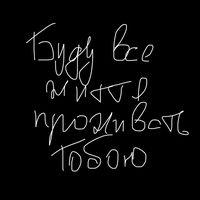 Буду все
життє
проживать
тобою